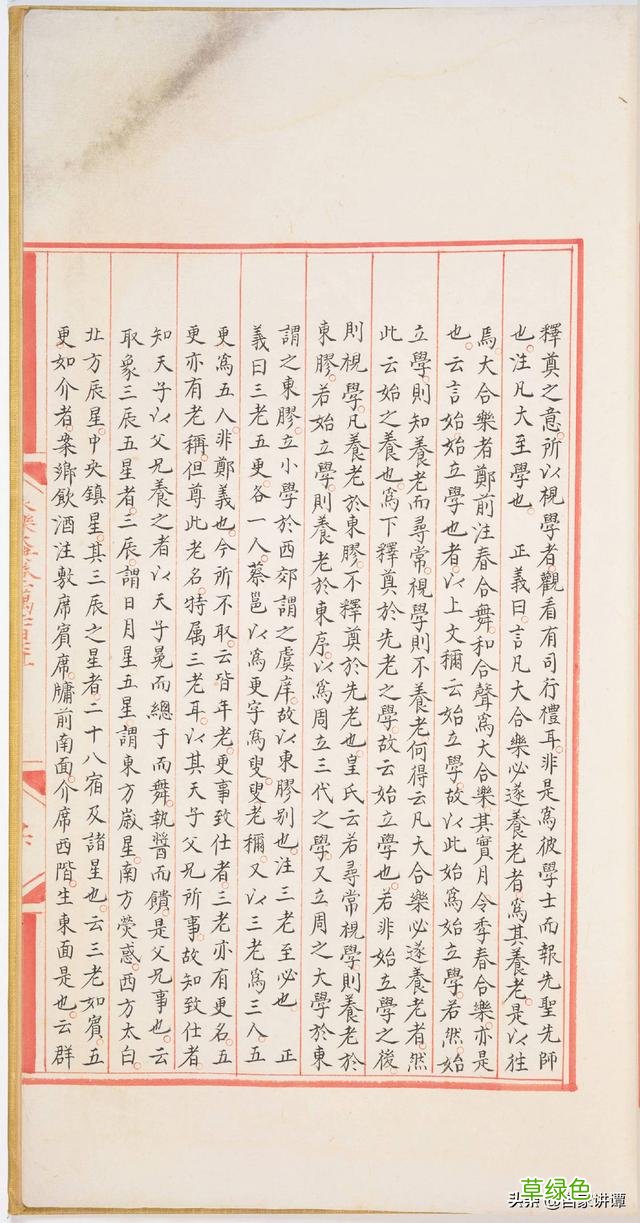 釋奠之意。所以視學者。觀看有司行禮耳。非是爲彼學士而報先聖先師
也。注凡大至學也。 正義曰。言凡大合樂必遂養老者。爲其養老。是以往
焉。大合樂者鄭前注春合舞。和合聲爲大合樂其實月令季春合樂。亦是
也。云言始始立學也者。以上文稱云始立學。故以此始爲始立學。若然。始
立學。則知養老而尋常。視學則不養老何得云凡大合樂必遂養老者。然
此云始之養也。爲下釋奠於先老之學。故云始立學也。若非始立學之後
則視學。凡養老於東膠。不釋奠於先老也。皇氏云若尋常視學則養老於
東膠。若始立學則養老於東序。以爲周立三代之學。又立周之大學於東
謂之東膠。立小學於西郊謂之虞庠。故以東膠別也。注三老至必也。 正
義曰三老五更。各一人。蔡邕以爲更字爲叟。叟老稱。又以三老爲三人。五
更爲五人。非鄭義也。今所不取。云皆年老。更事致仕者。三老亦有更名。五
更亦有老稱。但尊此老名。特属三老耳。以其天子父兄所事。故知致仕者。
知天子以父兄養之者以天子冕而總于而舞。執醬而饋。是父兄事也。云
取象三辰五星者。三辰。謂日月星五星。謂東方歲星。南方熒惑。西方太白。
北方辰星。中央鎮星。其三辰之星者。二十八宿及諸星也。云三老如賓。五
更。如介者。案鄉飲酒注敷席賓席。牖前南面。介席西階。生東面是也。云群
頭条 @百家讲谭
草绿色